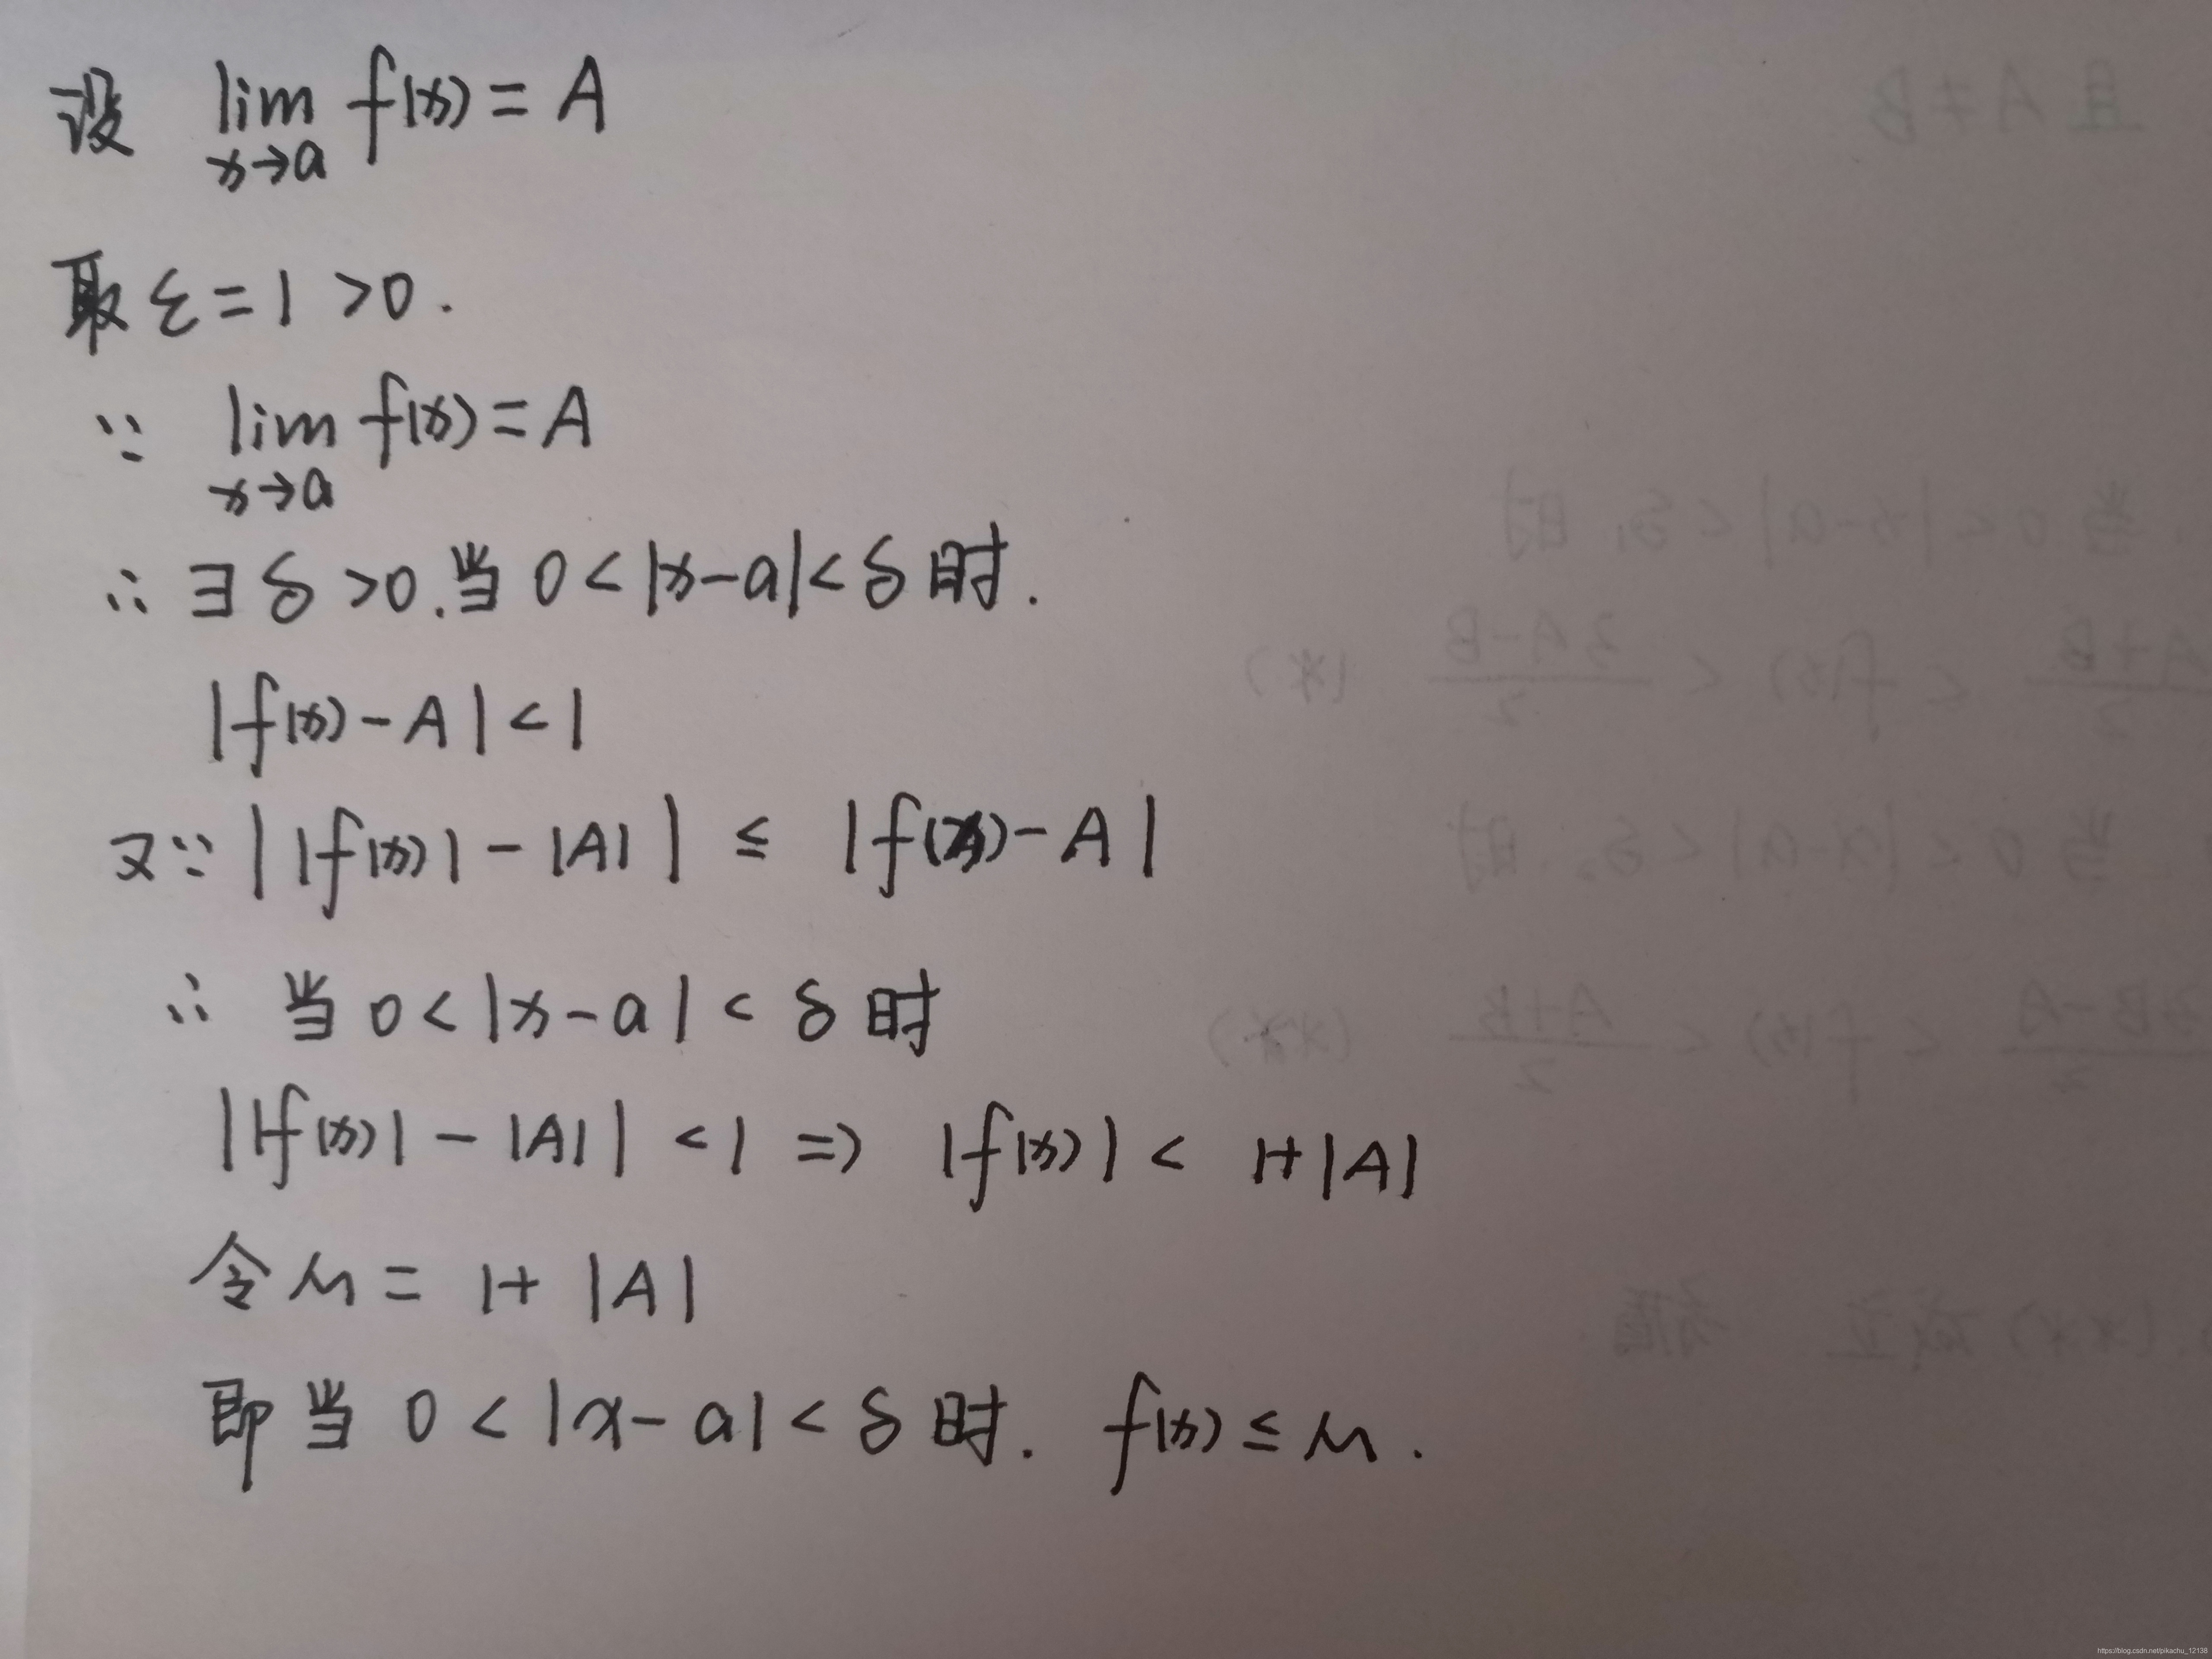 设 lim f(x) = A
x→a
取 ε = 1 > 0 .
∵ lim f(x) = A
x→a
∴ ∃ δ > 0 . 当 0 < |x-a| < δ 时 .
|f(x) - A| < 1
又∵ | |f(x)| - |A| | ≤ |f(x) - A|
∴ 当 0 < |x-a| < δ 时
||f(x)| - |A|| < 1 => |f(x)| < 1+|A|
令 M = 1+ |A|
即当 0 < |x-a| < δ 时 . f(x) ≤ M .
https://blog.csdn.net/pikachu_12138